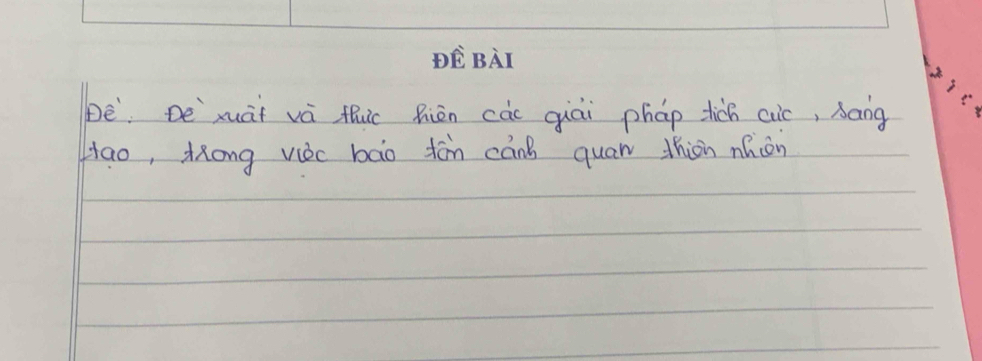 ĐỀ BÀI
Đề: Đề xuất và thực hiện các giải pháp tích cực, sáng
tạo, trong việc bảo tồn cảnh quan thiên nhiên